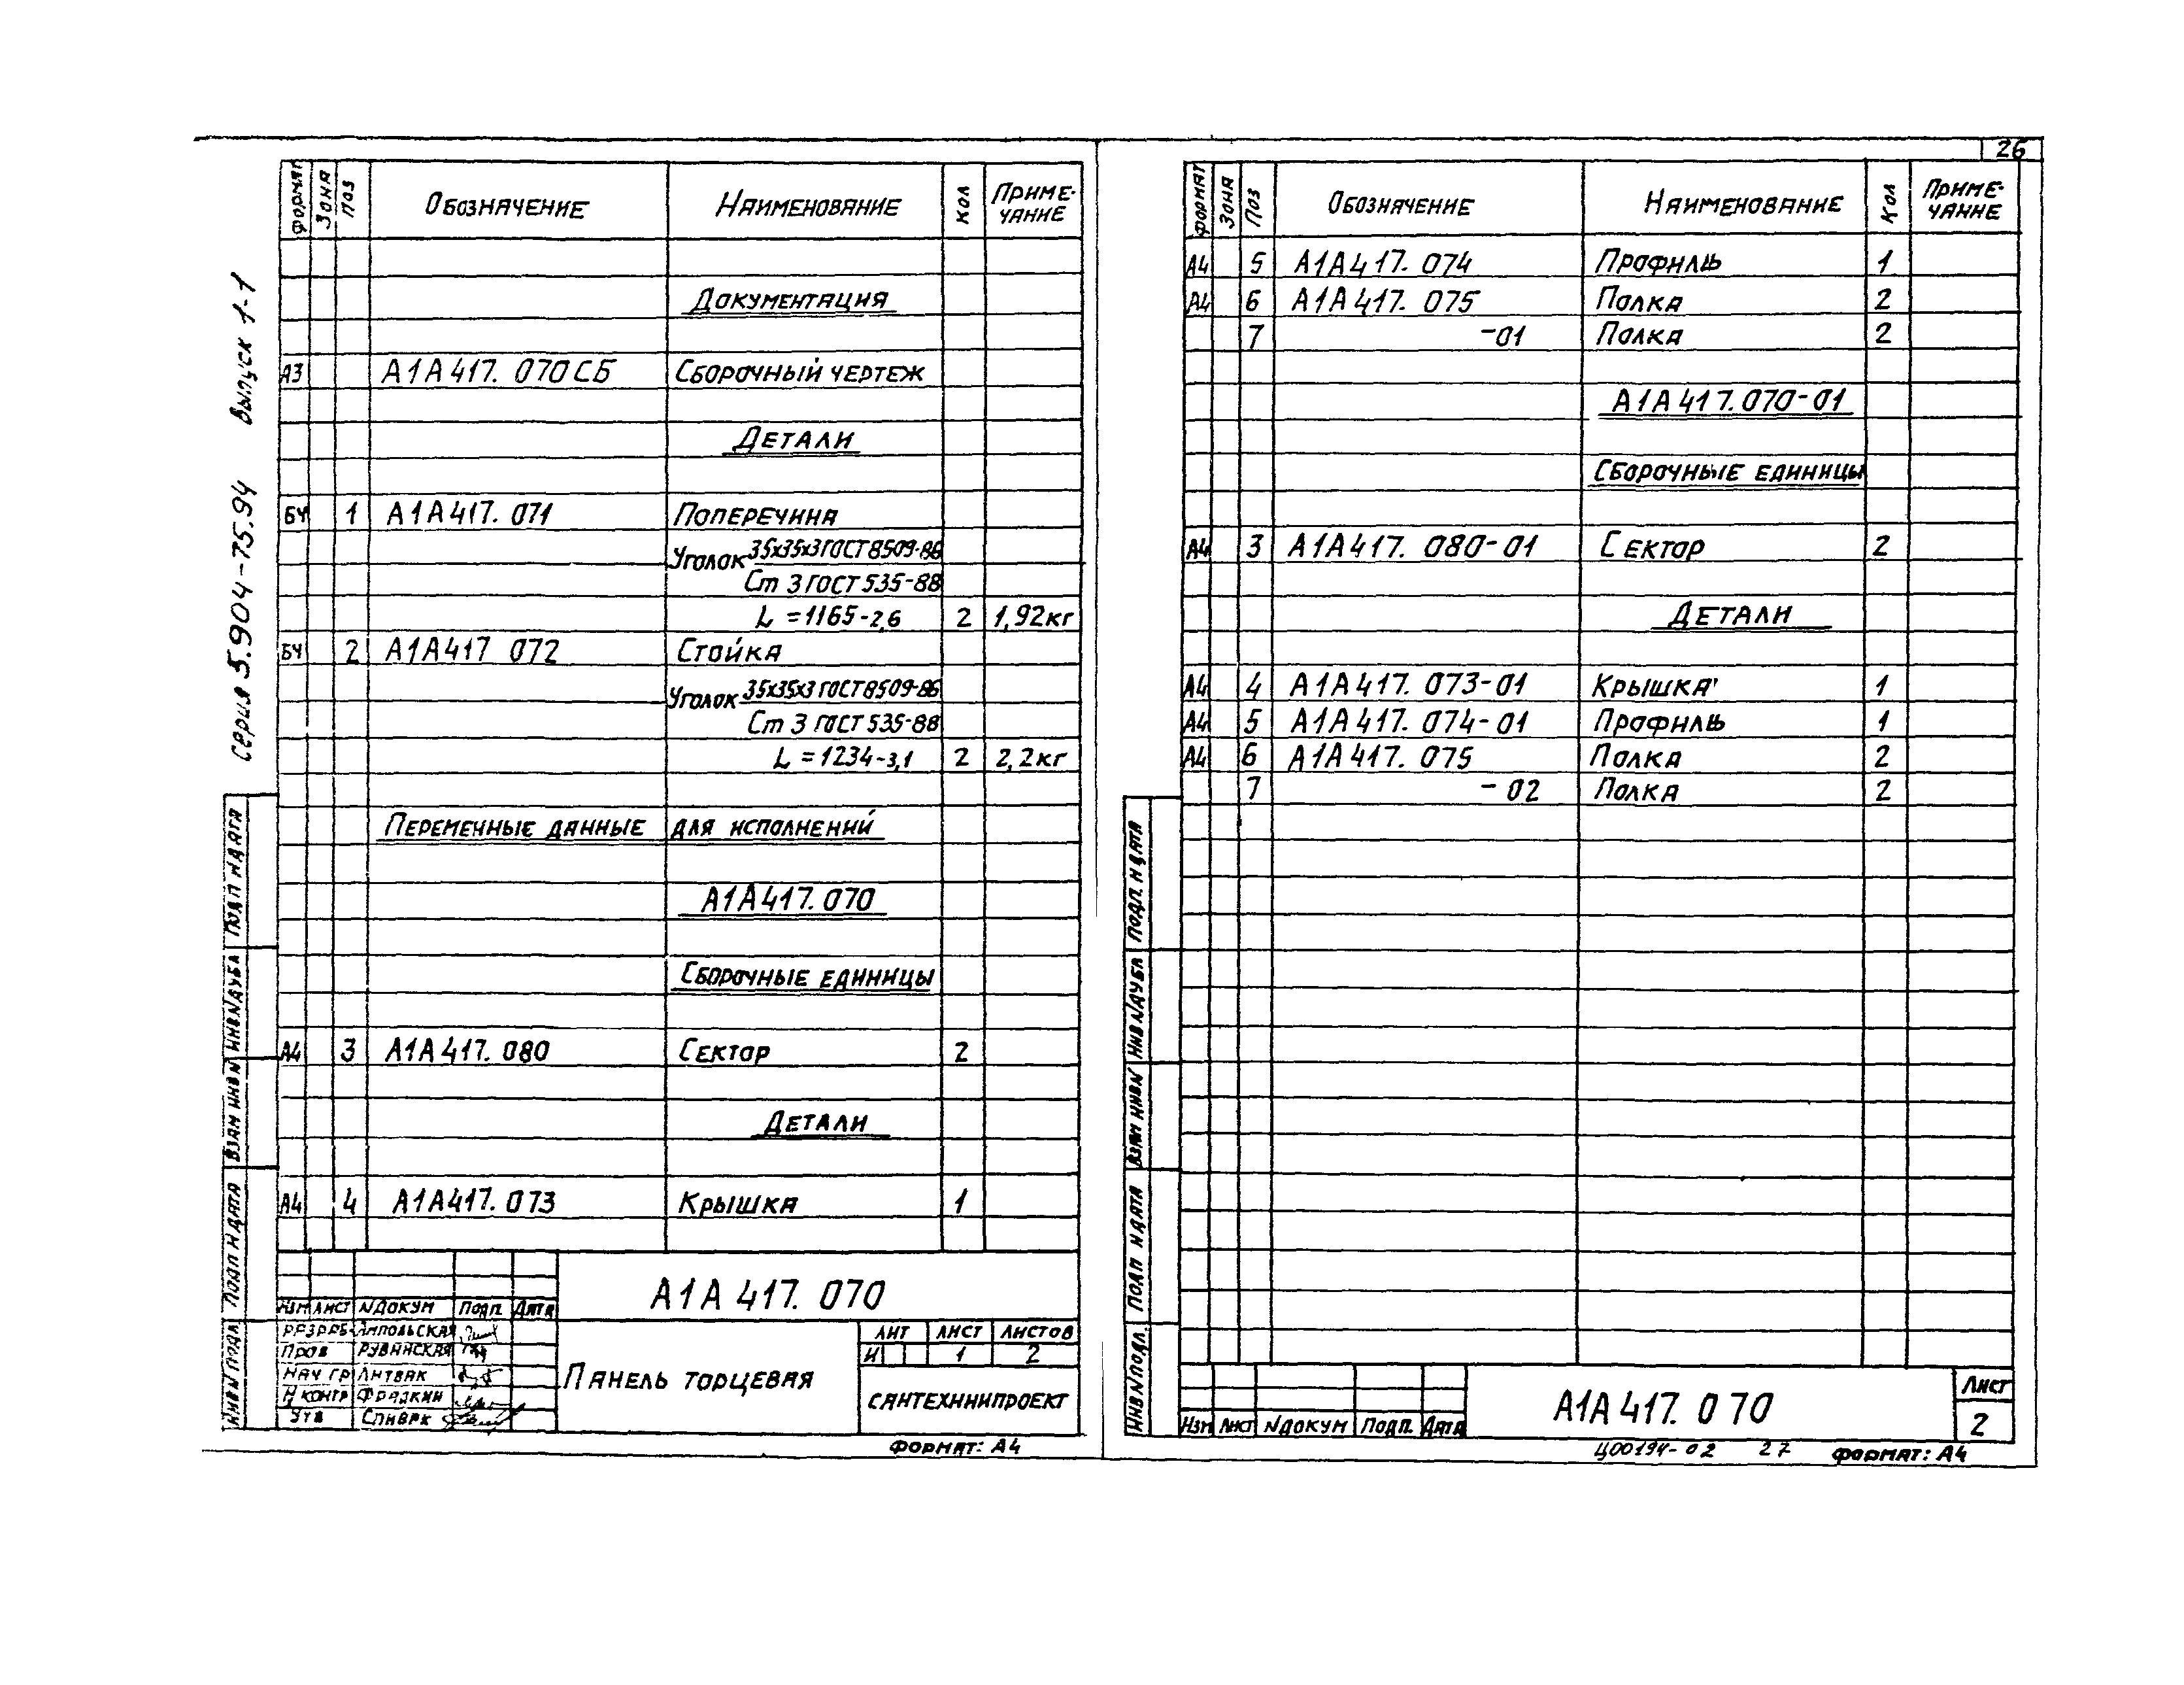 26
Серия 5.904-75.94 Выпуск 1-1
Формат Зона Поз Обозначение Наименование Кол Приме-чание
Документация
А3 А1А417.070СБ Сборочный чертеж
Детали
БЧ 1 А1А417.071 Поперечина
Уголок 35х35х3 ГОСТ 8509-86
Ст 3 ГОСТ 535-88
L = 1165-2,6 2 1,92кг
БЧ 2 А1А417 072 Стойка
Уголок 35х35х3 ГОСТ 8509-86
Ст 3 ГОСТ 535-88
L = 1234-3,1 2 2,2кг
Переменные данные для исполнений
А1А417.070
Сборочные единицы
А4 3 А1А417.080 Сектор 2
Детали
А4 4 А1А417.073 Крышка 1
Подп и дата
Инв N дубл
Взам инв N
Подп и дата
Инв N подл
А1А417.070
Изм Лист N докум Подп. Дата
Разраб. Ямпольская
Пров Рувинская
Нач гр Литвак
Н контр Фрадкин
Утв Спивак
Панель торцевая
Лит Лист Листов
И 1 2
Сантехниипроект
Формат: А4
Формат Зона Поз Обозначение Наименование Кол Приме-чание
А4 5 А1А417.074 Профиль 1
А4 6 А1А417.075 Полка 2
7 -01 Полка 2
А1А417.070-01
Сборочные единицы
А4 3 А1А417.080-01 Сектор 2
Детали
А4 4 А1А417.073-01 Крышка 1
А4 5 А1А417.074-01 Профиль 1
А4 6 А1А417.075 Полка 2
7 -02 Полка 2
Подп. и дата
Инв N дубл
Взам инв N
Подп и дата
Инв N подл.
Изм Лист N докум Подп. Дата
А1А417.070
Лист
2
Ц00194-02 27
Формат: А4